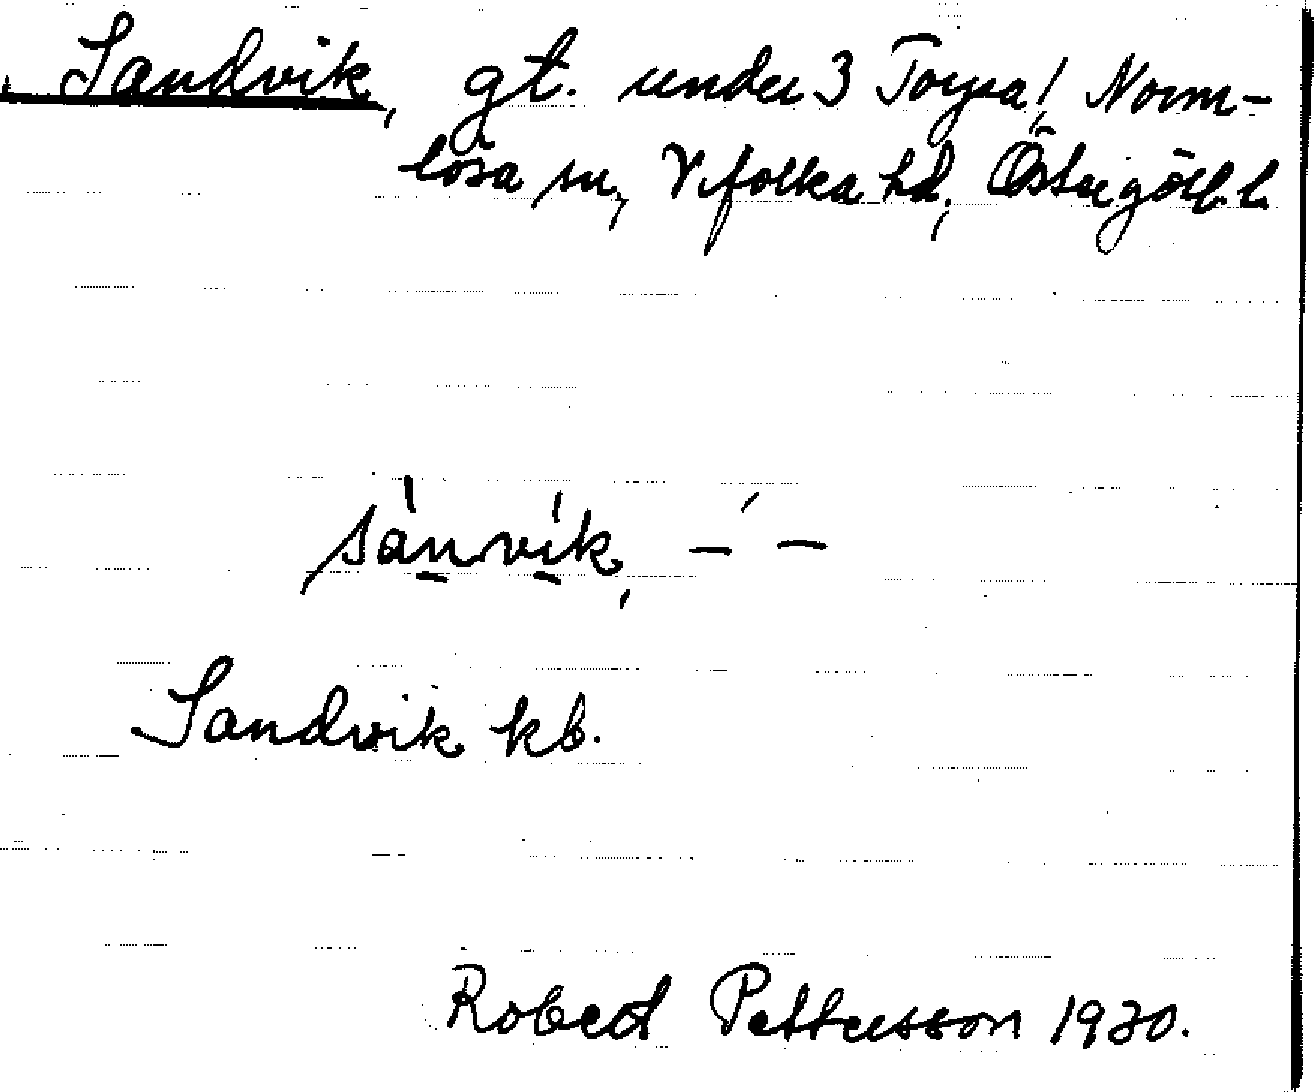 Sandvik, gt. under 3 Torpa! Norm-
lösa sn, Vifolka hd, Östergötl. l.
sànvík, –´–
Sandvik kb.
Robert Pettersson 1930.